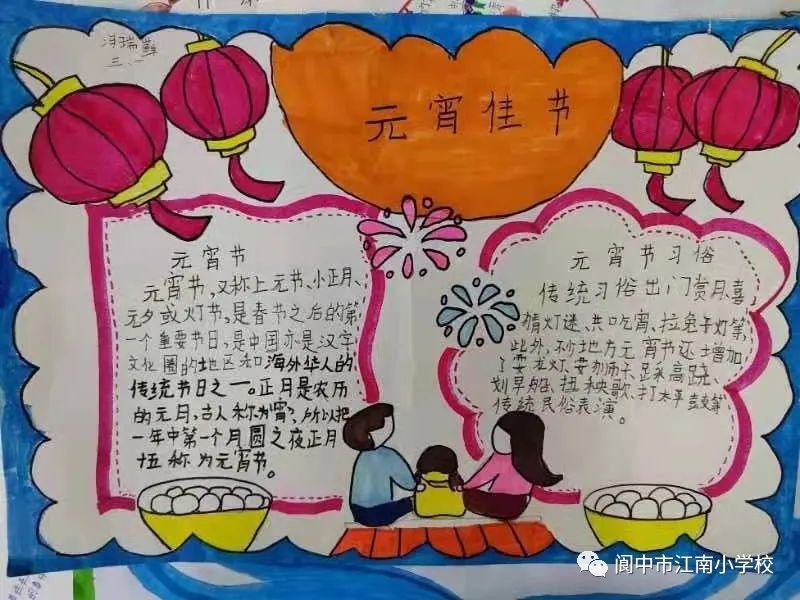 冯瑞
三、一
元宵佳节
元宵节
元宵节,又称上元节、小正月、
元夕或灯节,是春节之后的第
一个重要节日,是中国亦是汉字
文化圈的地区和海外华人的
传统节日之一。正月是农历
的元月,古人称为宵,所以把
一年中第一个月圆之夜正月
十五称为元宵节。
元宵节习俗
传统习俗出门赏月、喜
猜灯谜、共吃宵、拉兔子灯等,
此外,不少地方元宵节还增加
了耍龙灯、耍狮子、踩高跷、
划旱船、扭秧歌、打太平鼓等
传统民俗表演。
阆中市江南小学校